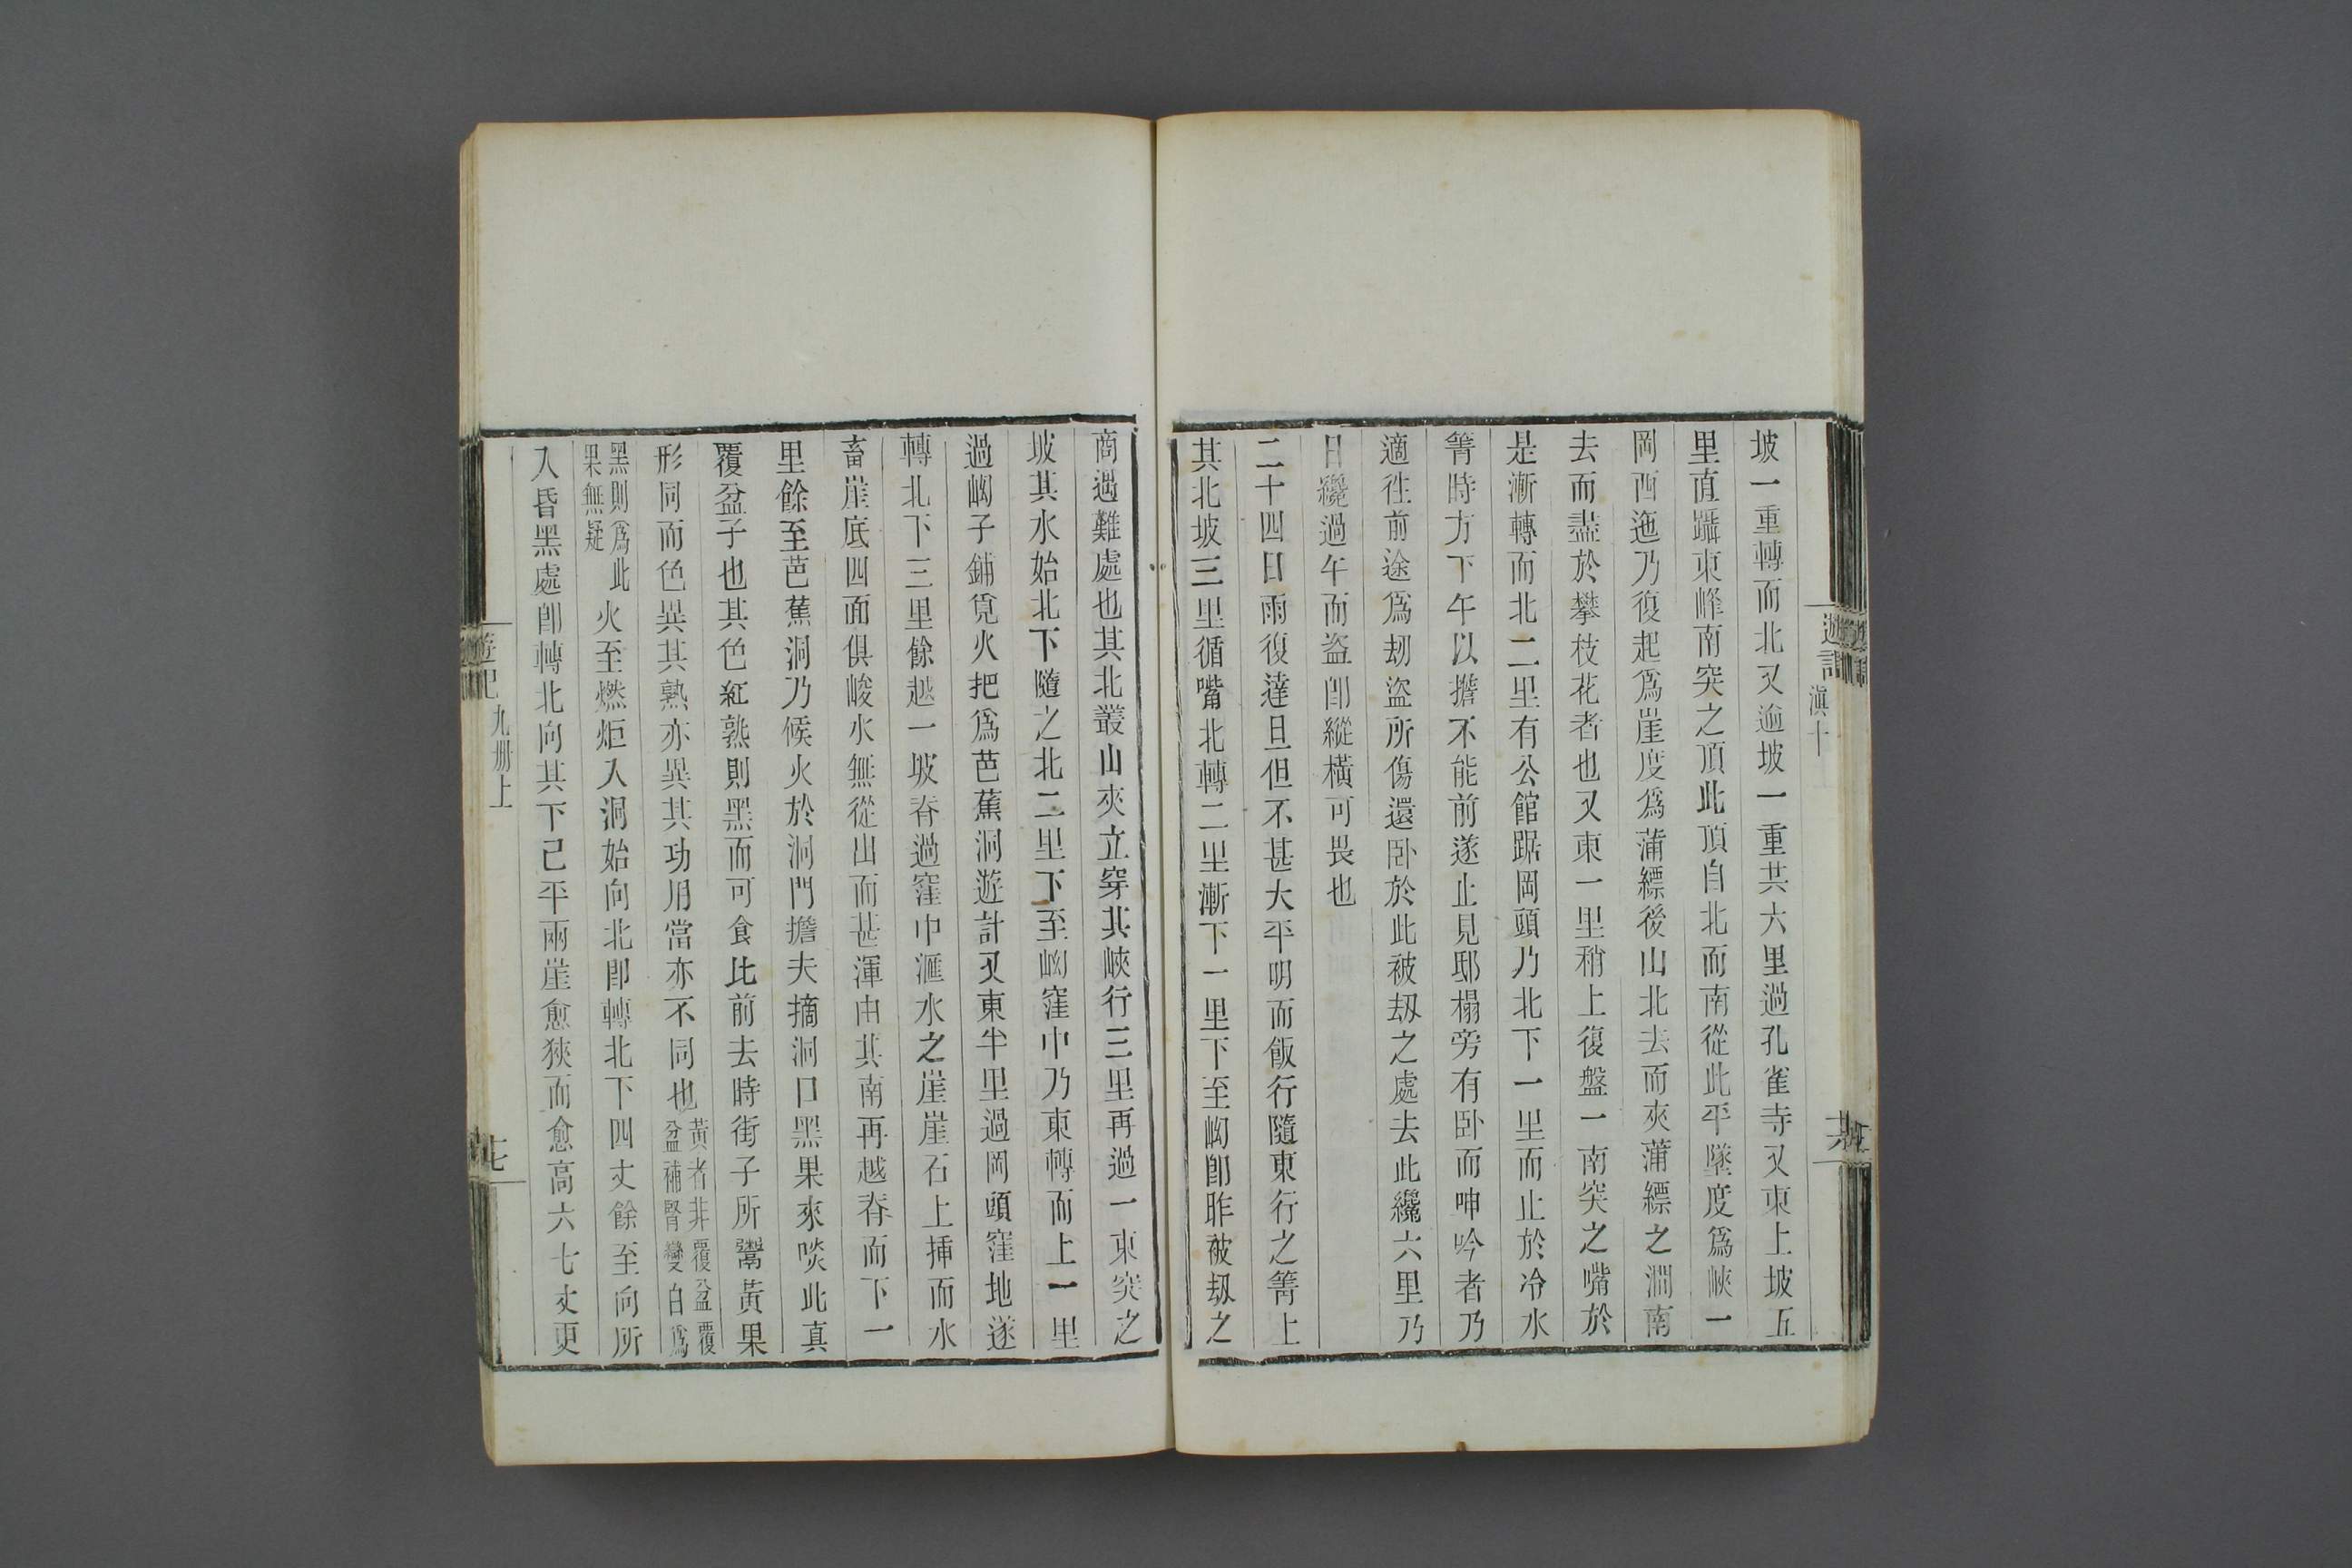 遊記
滇十
坡一重轉而北又逾坡一重共六里過孔雀寺又東上坡五
里直躡東峰南突之頂此頂自北而南從此平墜度爲峽一
岡西迤乃復起爲崖度爲蒲縹後山北去而夾蒲縹之澗南
去而盡於攀枝花者也又東一里稍上復盤一南突之嘴於
是漸轉而北二里有公館踞岡頭乃北下一里而止於冷水
箐時方下午以擔不能前遂止見邸榻旁有卧而呻吟者乃
適徃前途爲刼盜所傷還卧於此被刼之處去此纔六里乃
日纔過午而盜卽縱橫可畏也
二十四日雨復達旦但不甚大平明而飯行隨東行之箐上
其北坡三里循嘴北轉二里漸下一里下至峋卽昨被刼之
商遇難處也其北叢山夾立穿其峽行三里再過一東突之
坡其水始北下隨之北二里下至峋窪中乃東轉而上一里
過峋子鋪覓火把爲芭蕉洞遊計又東半里過岡頭窪地遂
轉北下三里餘越一坡脊過窪中滙水之崖崖石上揷而水
畜崖底四面俱峻水無從出而甚渾由其南再越脊而下一
里餘至芭蕉洞乃候火於洞門擔夫摘洞口黑果來啖此真
覆盆子也其色紅熟則黑而可食比前去時街子所鬻黃果
形同而色異其熟亦異其功用當亦不同也黃者非覆盆覆
盆補腎變白爲
黑則爲此
果無疑火至燃炬入洞始向北卽轉北下四丈餘至向所
入昏黑處卽轉北向其下已平兩崖愈狹而愈高六七丈更
遊記
九册上
十七